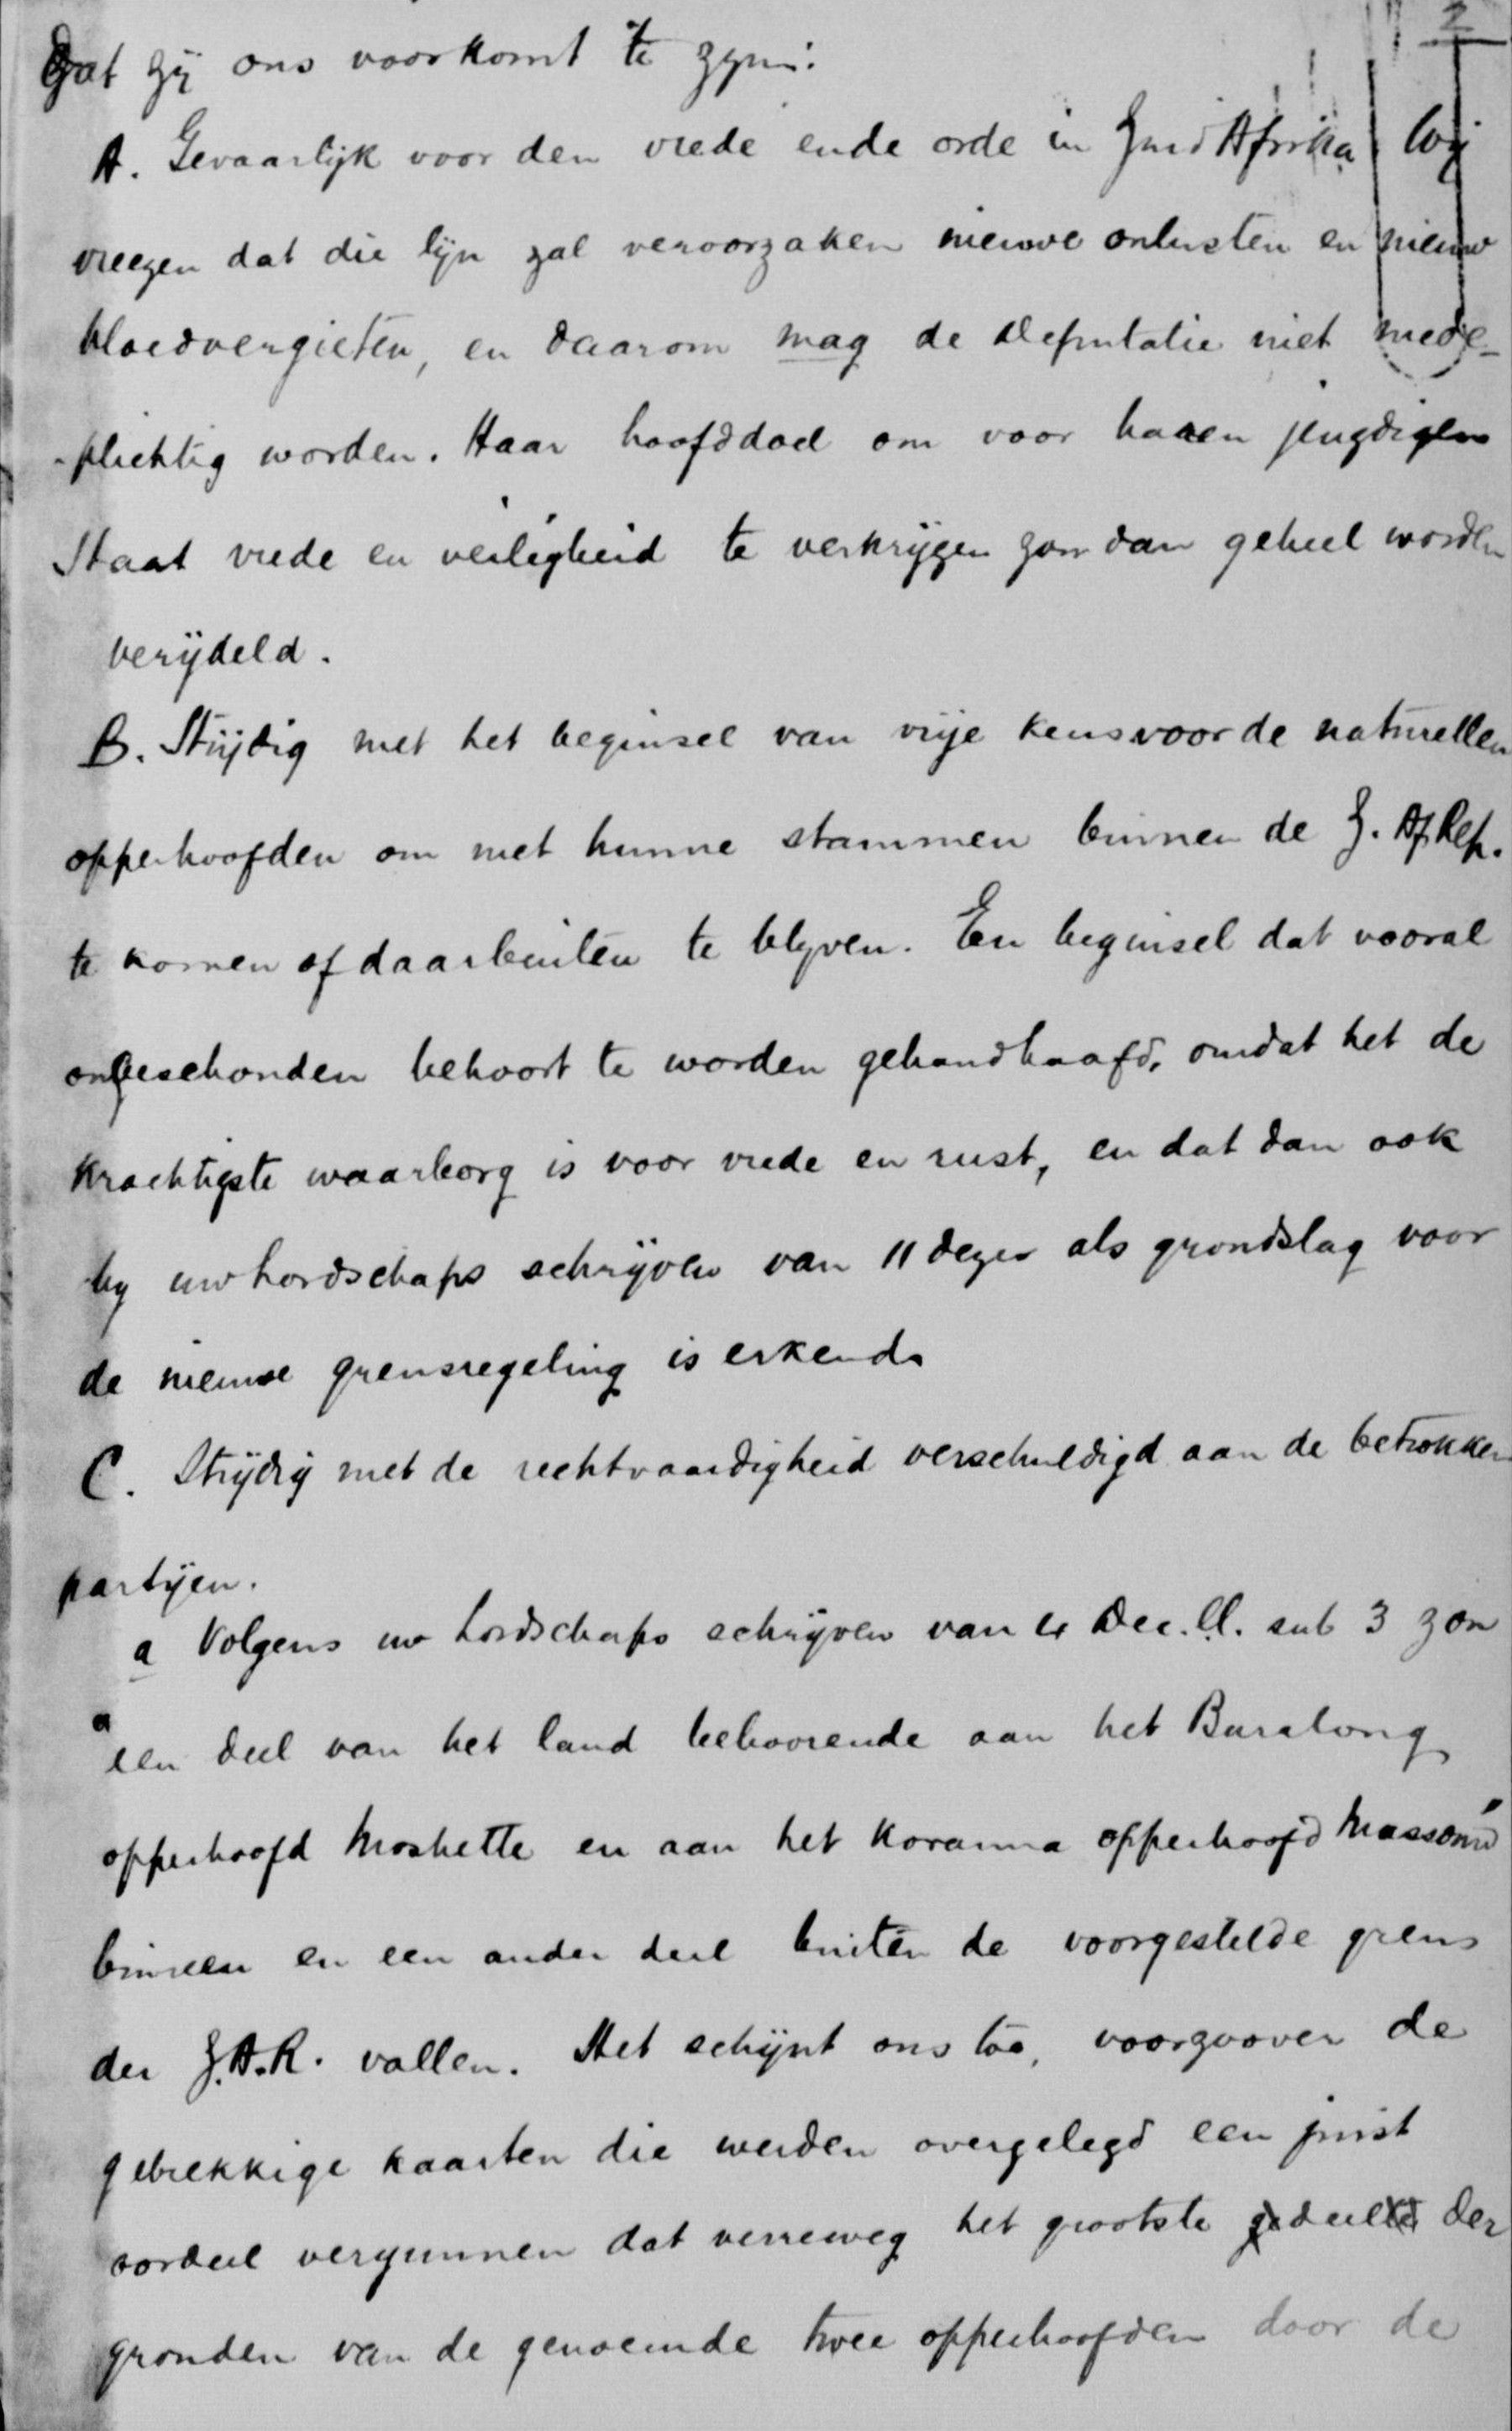 2
Dat zij ons voorkomt te zyn:
A. Gevaarlijk voor den vrede ende orde in Zuid Afrika Wij
vreezen dat die lijn zal veroorzaken nieuwe onlusten en nieuw
bloedvergieten, en daarom mag de Deputatie niet mede-
-plichtig worden. Haar hoofddoel om voor haaen jeugdigen
Staat vrede en veiligheid te verkrijgen zou dan geheel worden
verijdeld.
B. Strijdig met het beginsel van vrije keus voor de naturellen
opperhoofden om met hunne stammen binnen de Z. Af. Rep.
te komen of daarbuiten te blyven. Een beginsel dat vooral
ongeschonden behoort te worden gehandhaafd, omdat het de
krachtigste waarborg is voor vrede en rust, en dat dan ook
by uw Lordschaps schrijven van 11 dezer als grondslag voor
de nieuwe grensregeling is erkend.
C. Strijdig met de rechtvaardigheid verschuldigd aan de betrokken
partijen.
a Volgens uw Lordschaps schrijven van 4 Dec. ll. sub 3 zou
"een deel van het land behoorende aan het Baralong
opperhoofd Moshette en aan het Koranna opperhoofd Massouw
binnen en een ander deel buiten de voorgestelde grens
der Z.A.R. vallen. Het schijnt ons toe, voorzoover de
gebrekkige kaarten die werden overgelegd een juist
oordeel vergunnen dat verreweg het grootste gedeelte der
gronden van de genoemde twee opperhoofden door de